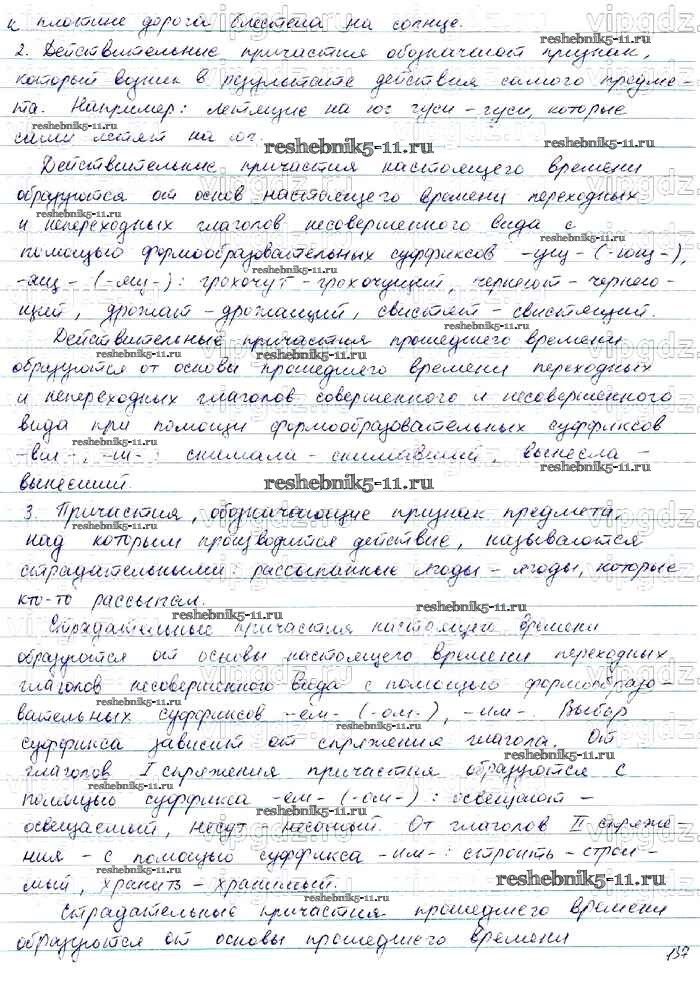 к плотине дорога блестела на солнце.
2. Действительные причастия обозначают признак,
который возник в результате действия самого предме-
та. Например: летящие на юг гуси – гуси, которые
сами летят на юг.
Действительные причастия настоящего времени
образуются от основ настоящего времени переходных
и непереходных глаголов несовершенного вида с
помощью формообразовательных суффиксов -ущ- (-ющ-),
-ащ- (-ящ-): грохочут – грохочущий, чернеют – чернею-
щий, дрожат – дрожащий, свистят – свистящий.
Действительные причастия прошедшего времени
образуются от основы прошедшего времени переходных
и непереходных глаголов совершенного и несовершенного
вида при помощи формообразовательных суффиксов
-вш-, -ш-: снимали – снимавший, вынесла –
вынесший.
3. Причастия, обозначающие признак предмета,
над которым производится действие, называются
страдательными: рассыпанные ягоды – ягоды, которые
кто-то рассыпал.
Страдательные причастия настоящего времени
образуются от основы настоящего времени переходных
глаголов несовершенного вида с помощью формообразо-
вательных суффиксов -ем- (-ом-), -им-. Выбор
суффикса зависит от спряжения глагола. От
глаголов I спряжения причастия образуются с
помощью суффикса -ем- (-ом-): освещают –
освещаемый, несут – несомый. От глаголов II спряже-
ния – с помощью суффикса -им-: строить – строи-
мый, хранить – хранимый.
Страдательные причастия прошедшего времени
образуются от основы прошедшего времени
137
vipgdz.ru
reshebnik5-11.ru